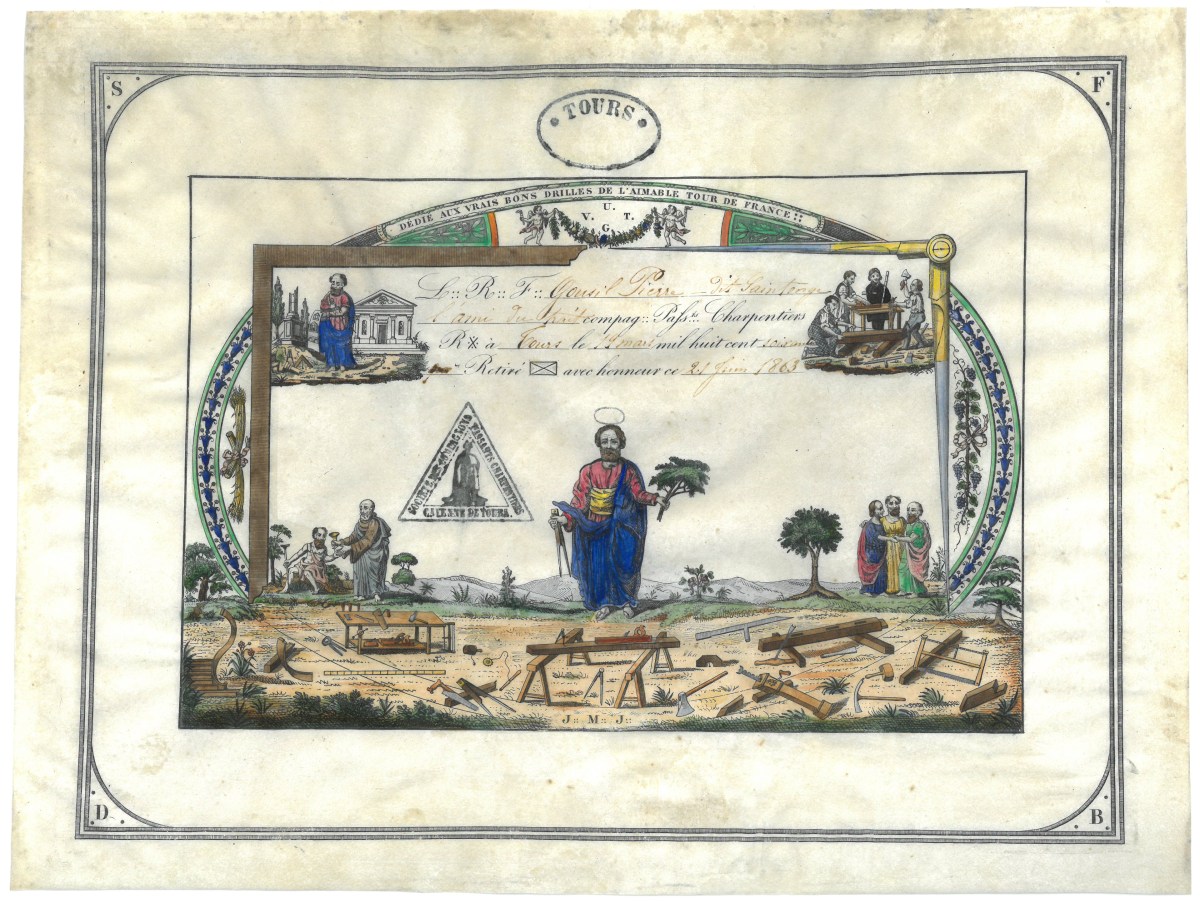 S F
• TOURS •
DÉDIÉ AUX VRAIS BONS DRILLES DE L'AIMABLE TOUR DE FRANCE::
U.
V. T.
G.
L:: R:: F:: Gousil Pierre dit Saintonge
l'ami du trait compag:: Pass.ts Charpentiers
R à Tours le 19 mars mil huit cent soixante
Retiré avec honneur ce 21 juin 1863
PASSANTS CHARPENTIERS
CAYENNE DE TOURS.
J:: M:: J::
D B